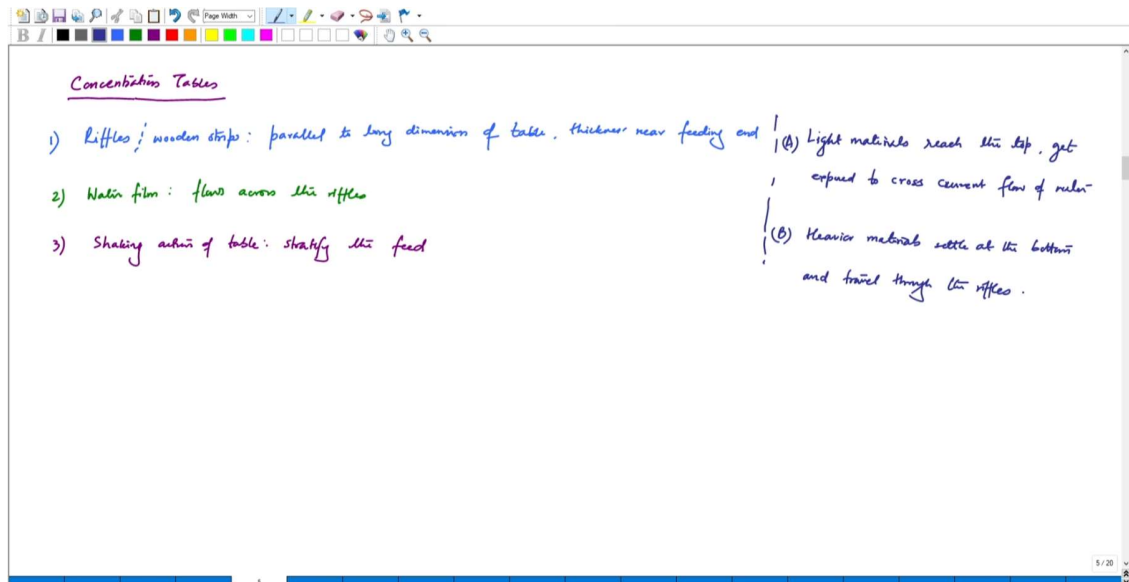 Page Width
Concentration Tables
1) Riffles / wooden strips : parallel to long dimension of table, thickness near feeding end
2) Water film : flows across the riffles
3) Shaking action of table : stratify the feed
(A) Light materials reach the top, get
exposed to cross current flow of water
(B) Heavier materials settle at the bottom
and travel through the riffles.
5 / 20